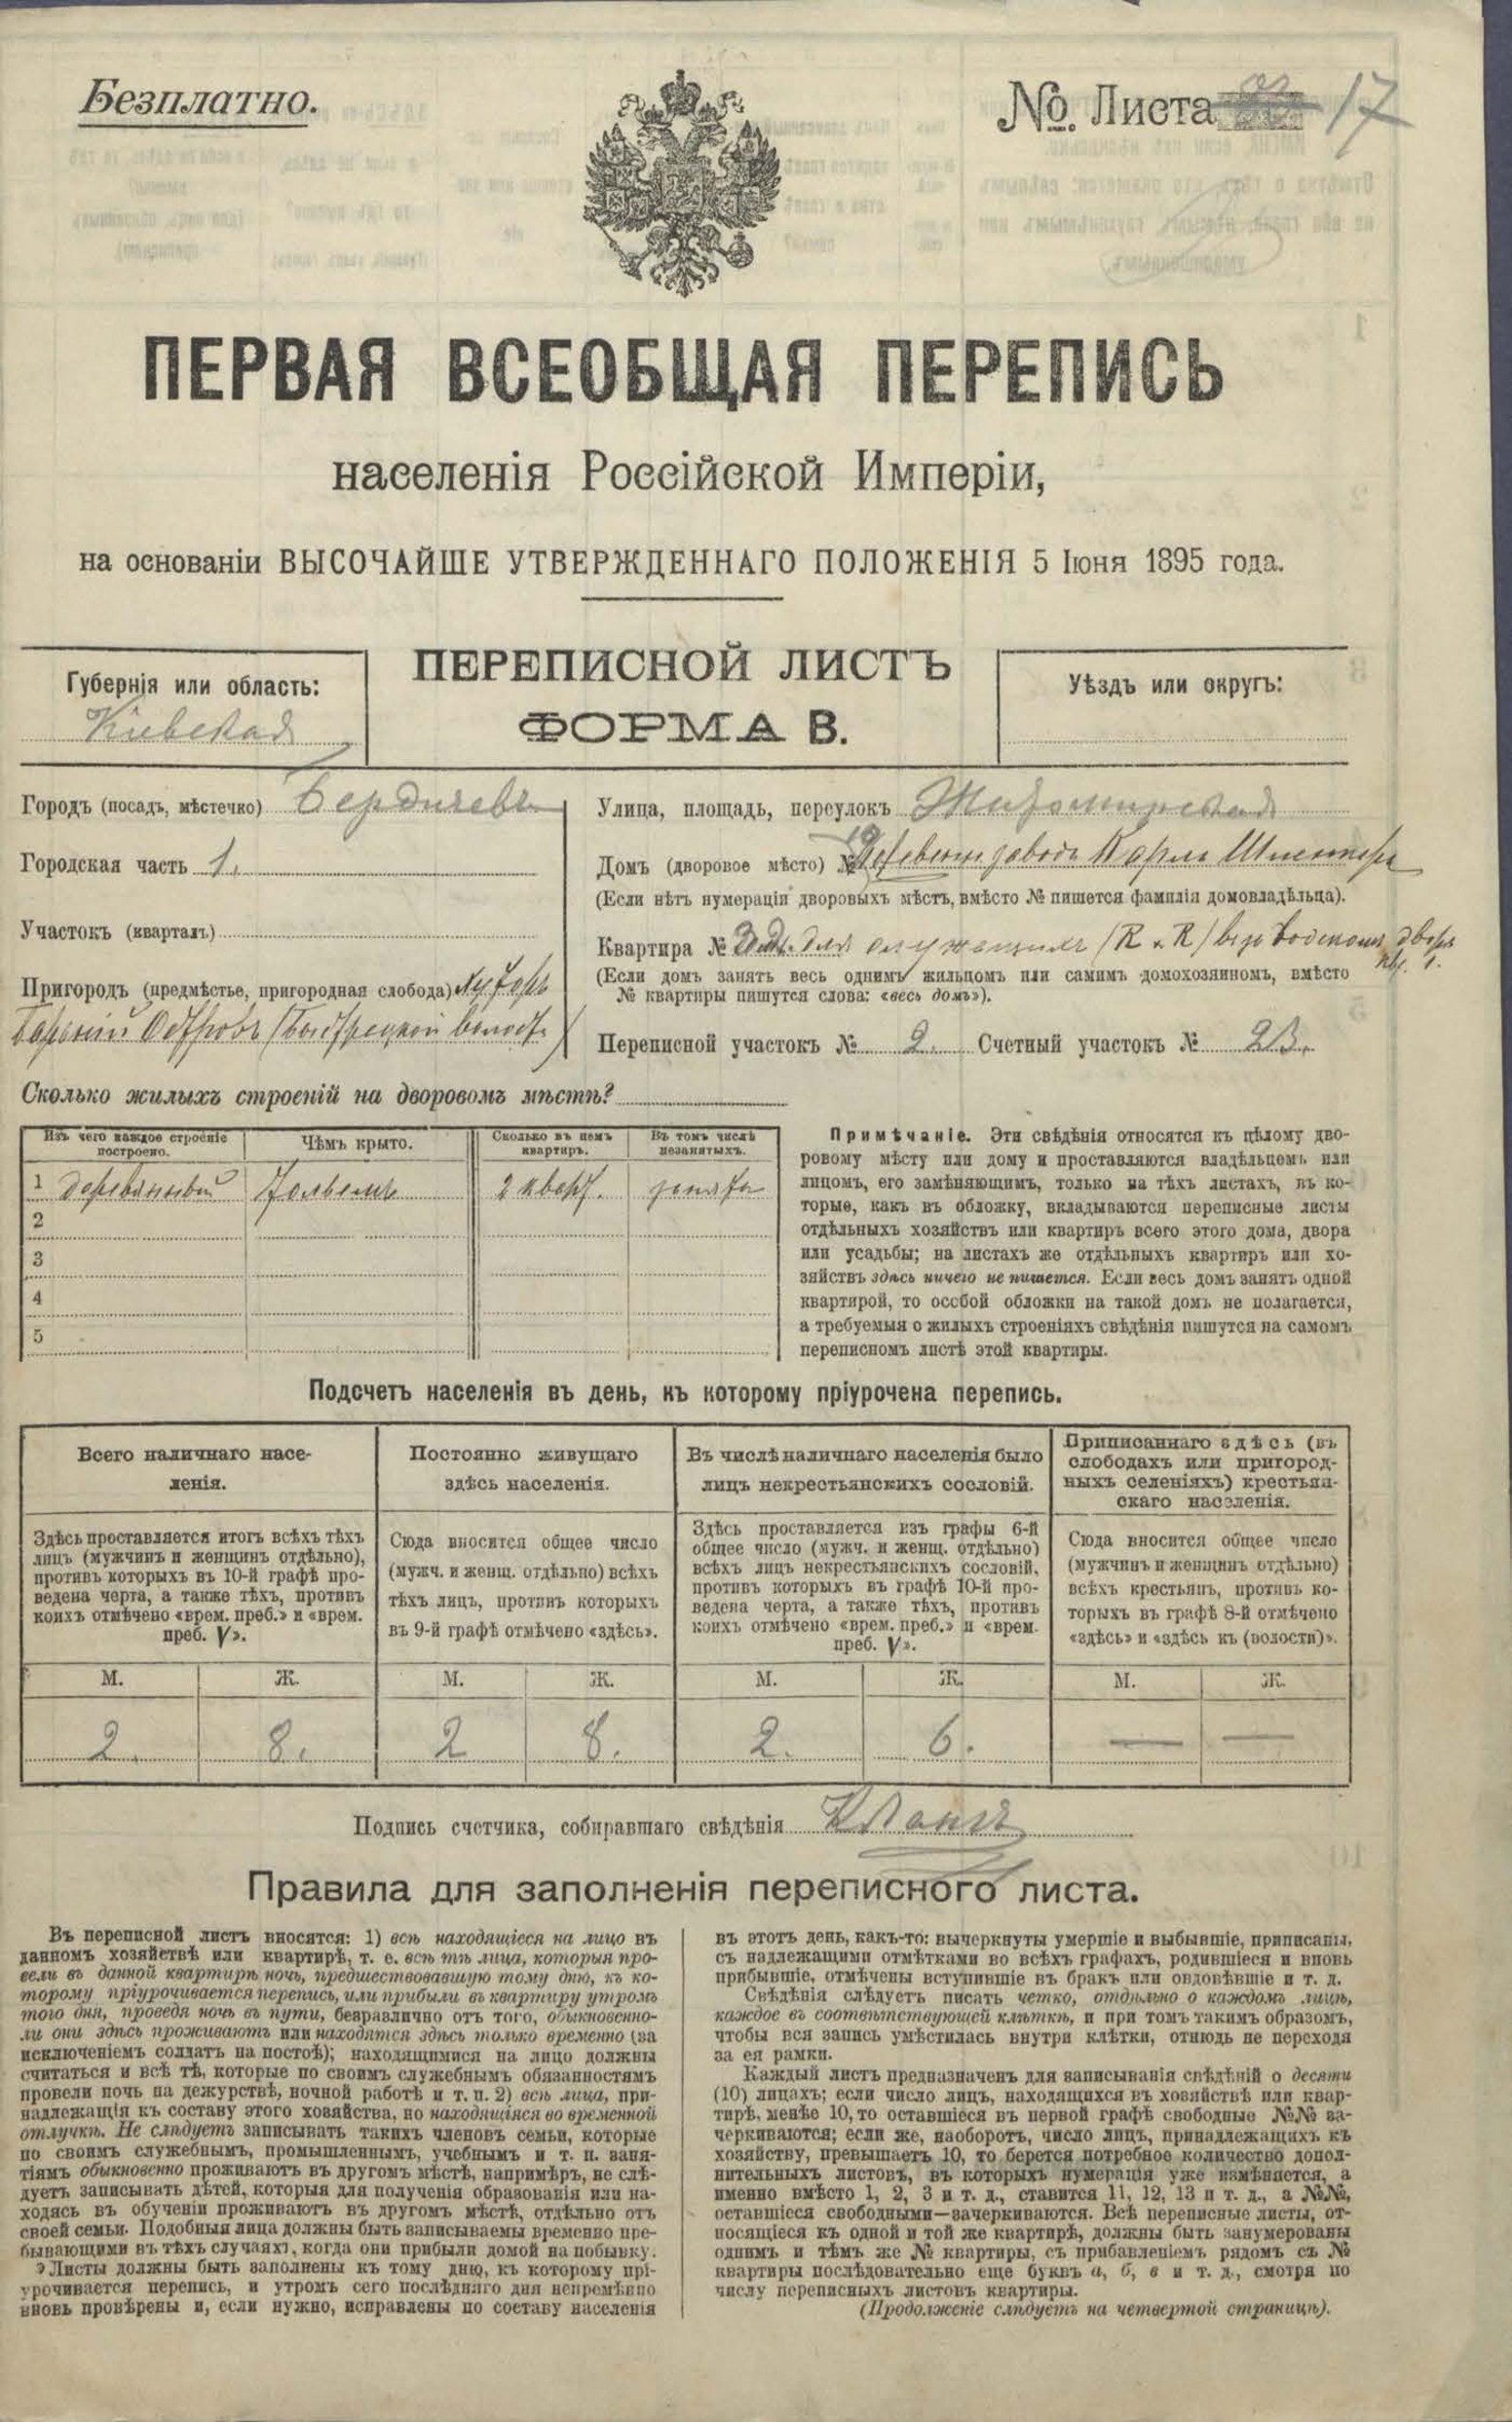 Безплатно.
№. Листа 17
ПЕРВАЯ ВСЕОБЩАЯ ПЕРЕПИСЬ
населенія Россійской Имперіи,
на основаніи ВЫСОЧАЙШЕ УТВЕРЖДЕННАГО ПОЛОЖЕНІЯ 5 Іюня 1895 года.
Губернія или область:
Кіевская
ПЕРЕПИСНОЙ ЛИСТЪ
ФОРМА В.
Уѣздъ или округъ:
Городъ (посадъ, мѣстечко) Бердичевъ
Городская часть 1.
Участокъ (кварталъ)
Пригородъ (предмѣстье, пригородная слобода) Хуторъ
Островъ (Быстрецкой волост.)
Улица, площадь, переулокъ Житомирская
Домъ (дворовое мѣсто) № заводъ Карла
(Если нѣтъ нумераціи дворовыхъ мѣстъ, вмѣсто № пишется фамилія домовладѣльца).
Квартира № для служащихъ дворъ
кв. 1.
(Если домъ занятъ весь однимъ жильцомъ или самимъ домохозяиномъ, вмѣсто
№ квартиры пишутся слова: «весь домъ»).
Переписной участокъ № 2. Счетный участокъ № 23.
Сколько жилыхъ строеній на дворовомъ мѣстѣ?
Изъ чего каждое строеніе построено. Чѣмъ крыто. Сколько въ немъ квартиръ. Въ томъ числѣ незанятыхъ.
1 деревянный 2 кварт. заняты
2
3
4
5
Примѣчаніе. Эти свѣдѣнія относятся къ цѣлому дво-
ровому мѣсту или дому и проставляются владѣльцемъ или
лицомъ, его замѣняющимъ, только на тѣхъ листахъ, въ ко-
торые, какъ въ обложку, вкладываются переписные листы
отдѣльныхъ хозяйствъ или квартиръ всего этого дома, двора
или усадьбы; на листахъ же отдѣльныхъ квартиръ или хо-
зяйствъ здѣсь ничего не пишется. Если весь домъ занятъ одной
квартирой, то особой обложки на такой домъ не полагается,
а требуемыя о жилыхъ строеніяхъ свѣдѣнія пишутся на самомъ
переписномъ листѣ этой квартиры.
Подсчетъ населенія въ день, къ которому пріурочена перепись.
Всего наличнаго насе-
ленія.
Здѣсь проставляется итогъ всѣхъ тѣхъ
лицъ (мужчинъ и женщинъ отдѣльно),
противъ которыхъ въ 10-й графѣ про-
ведена черта, а также тѣхъ, противъ
коихъ отмѣчено «врем. преб.» и «врем.
преб. V».
М. Ж.
2. 8.
Постоянно живущаго
здѣсь населенія.
Сюда вносится общее число
(мужч. и женщ. отдѣльно) всѣхъ
тѣхъ лицъ, противъ которыхъ
въ 9-й графѣ отмѣчено «здѣсь».
М. Ж.
2 8.
Въ числѣ наличнаго населенія было
лицъ некрестьянскихъ сословій.
Здѣсь проставляется изъ графы 6-й
общее число (мужч. и женщ. отдѣльно)
всѣхъ лицъ некрестьянскихъ сословій,
противъ которыхъ въ графѣ 10-й про-
ведена черта, а также тѣхъ, противъ
коихъ отмѣчено «врем. преб.» и «врем.
преб. V».
М. Ж.
2. 6.
Приписаннаго здѣсь (въ
слободахъ или пригород-
ныхъ селеніяхъ) крестьян-
скаго населенія.
Сюда вносится общее число
(мужчинъ и женщинъ отдѣльно)
всѣхъ крестьянъ, противъ ко-
торыхъ въ графѣ 8-й отмѣчено
«здѣсь» и «здѣсь къ (волости)».
М. Ж.
— —
Подпись счетчика, собиравшаго свѣдѣнія
Правила для заполненія переписного листа.
Въ переписной листъ вносятся: 1) всѣ находящіеся на лицо въ
данномъ хозяйствѣ или квартирѣ, т. е. всѣ тѣ лица, которыя про-
вели въ данной квартирѣ ночь, предшествовавшую тому дню, къ ко-
торому пріурочивается перепись, или прибыли въ квартиру утромъ
того дня, проведя ночь въ пути, безразлично отъ того, обыкновенно-
ли они здѣсь проживаютъ или находятся здѣсь только временно (за
исключеніемъ солдатъ на постоѣ); находящимися на лицо должны
считаться и всѣ тѣ, которые по своимъ служебнымъ обязанностямъ
провели ночь на дежурствѣ, ночной работѣ и т. п. 2) всѣ лица, при-
надлежащія къ составу этого хозяйства, но находящіяся во временной
отлучкѣ. Не слѣдуетъ записывать такихъ членовъ семьи, которые
по своимъ служебнымъ, промышленнымъ, учебнымъ и т. п. заня-
тіямъ обыкновенно проживаютъ въ другомъ мѣстѣ, напримѣръ, не слѣ-
дуетъ записывать дѣтей, которыя для полученія образованія или на-
ходясь въ обученіи проживаютъ въ другомъ мѣстѣ, отдѣльно отъ
своей семьи. Подобныя лица должны быть записываемы временно пре-
бывающими въ тѣхъ случаяхъ, когда они прибыли домой на побывку.
Листы должны быть заполнены къ тому дню, къ которому прі-
урочивается перепись, и утромъ сего послѣдняго дня непремѣнно
вновь провѣрены и, если нужно, исправлены по составу населенія
въ этотъ день, какъ-то: вычеркнуты умершіе и выбывшіе, приписаны,
съ надлежащими отмѣтками во всѣхъ графахъ, родившіеся и вновь
прибывшіе, отмѣчены вступившіе въ бракъ или овдовѣвшіе и т. д.
Свѣдѣнія слѣдуетъ писать четко, отдѣльно о каждомъ лицѣ,
каждое въ соотвѣтствующей клѣткѣ, и при томъ такимъ образомъ,
чтобы вся запись умѣстилась внутри клѣтки, отнюдь не переходя
за ея рамки.
Каждый листъ предназначенъ для записыванія свѣдѣній о десяти
(10) лицахъ; если число лицъ, находящихся въ хозяйствѣ или квар-
тирѣ, менѣе 10, то оставшіеся въ первой графѣ свободные №№ за-
черкиваются; если же, наоборотъ, число лицъ, принадлежащихъ къ
хозяйству, превышаетъ 10, то берется потребное количество допол-
нительныхъ листовъ, въ которыхъ нумерація уже измѣняется, а
именно вмѣсто 1, 2, 3 и т. д., ставится 11, 12, 13 и т. д., а №№,
оставшіеся свободными—зачеркиваются. Всѣ переписные листы, от-
носящіеся къ одной и той же квартирѣ, должны быть занумерованы
однимъ и тѣмъ же № квартиры, съ прибавленіемъ рядомъ съ №
квартиры послѣдовательно еще буквъ а, б, в и т. д., смотря по
числу переписныхъ листовъ квартиры.
(Продолженіе слѣдуетъ на четвертой страницѣ).